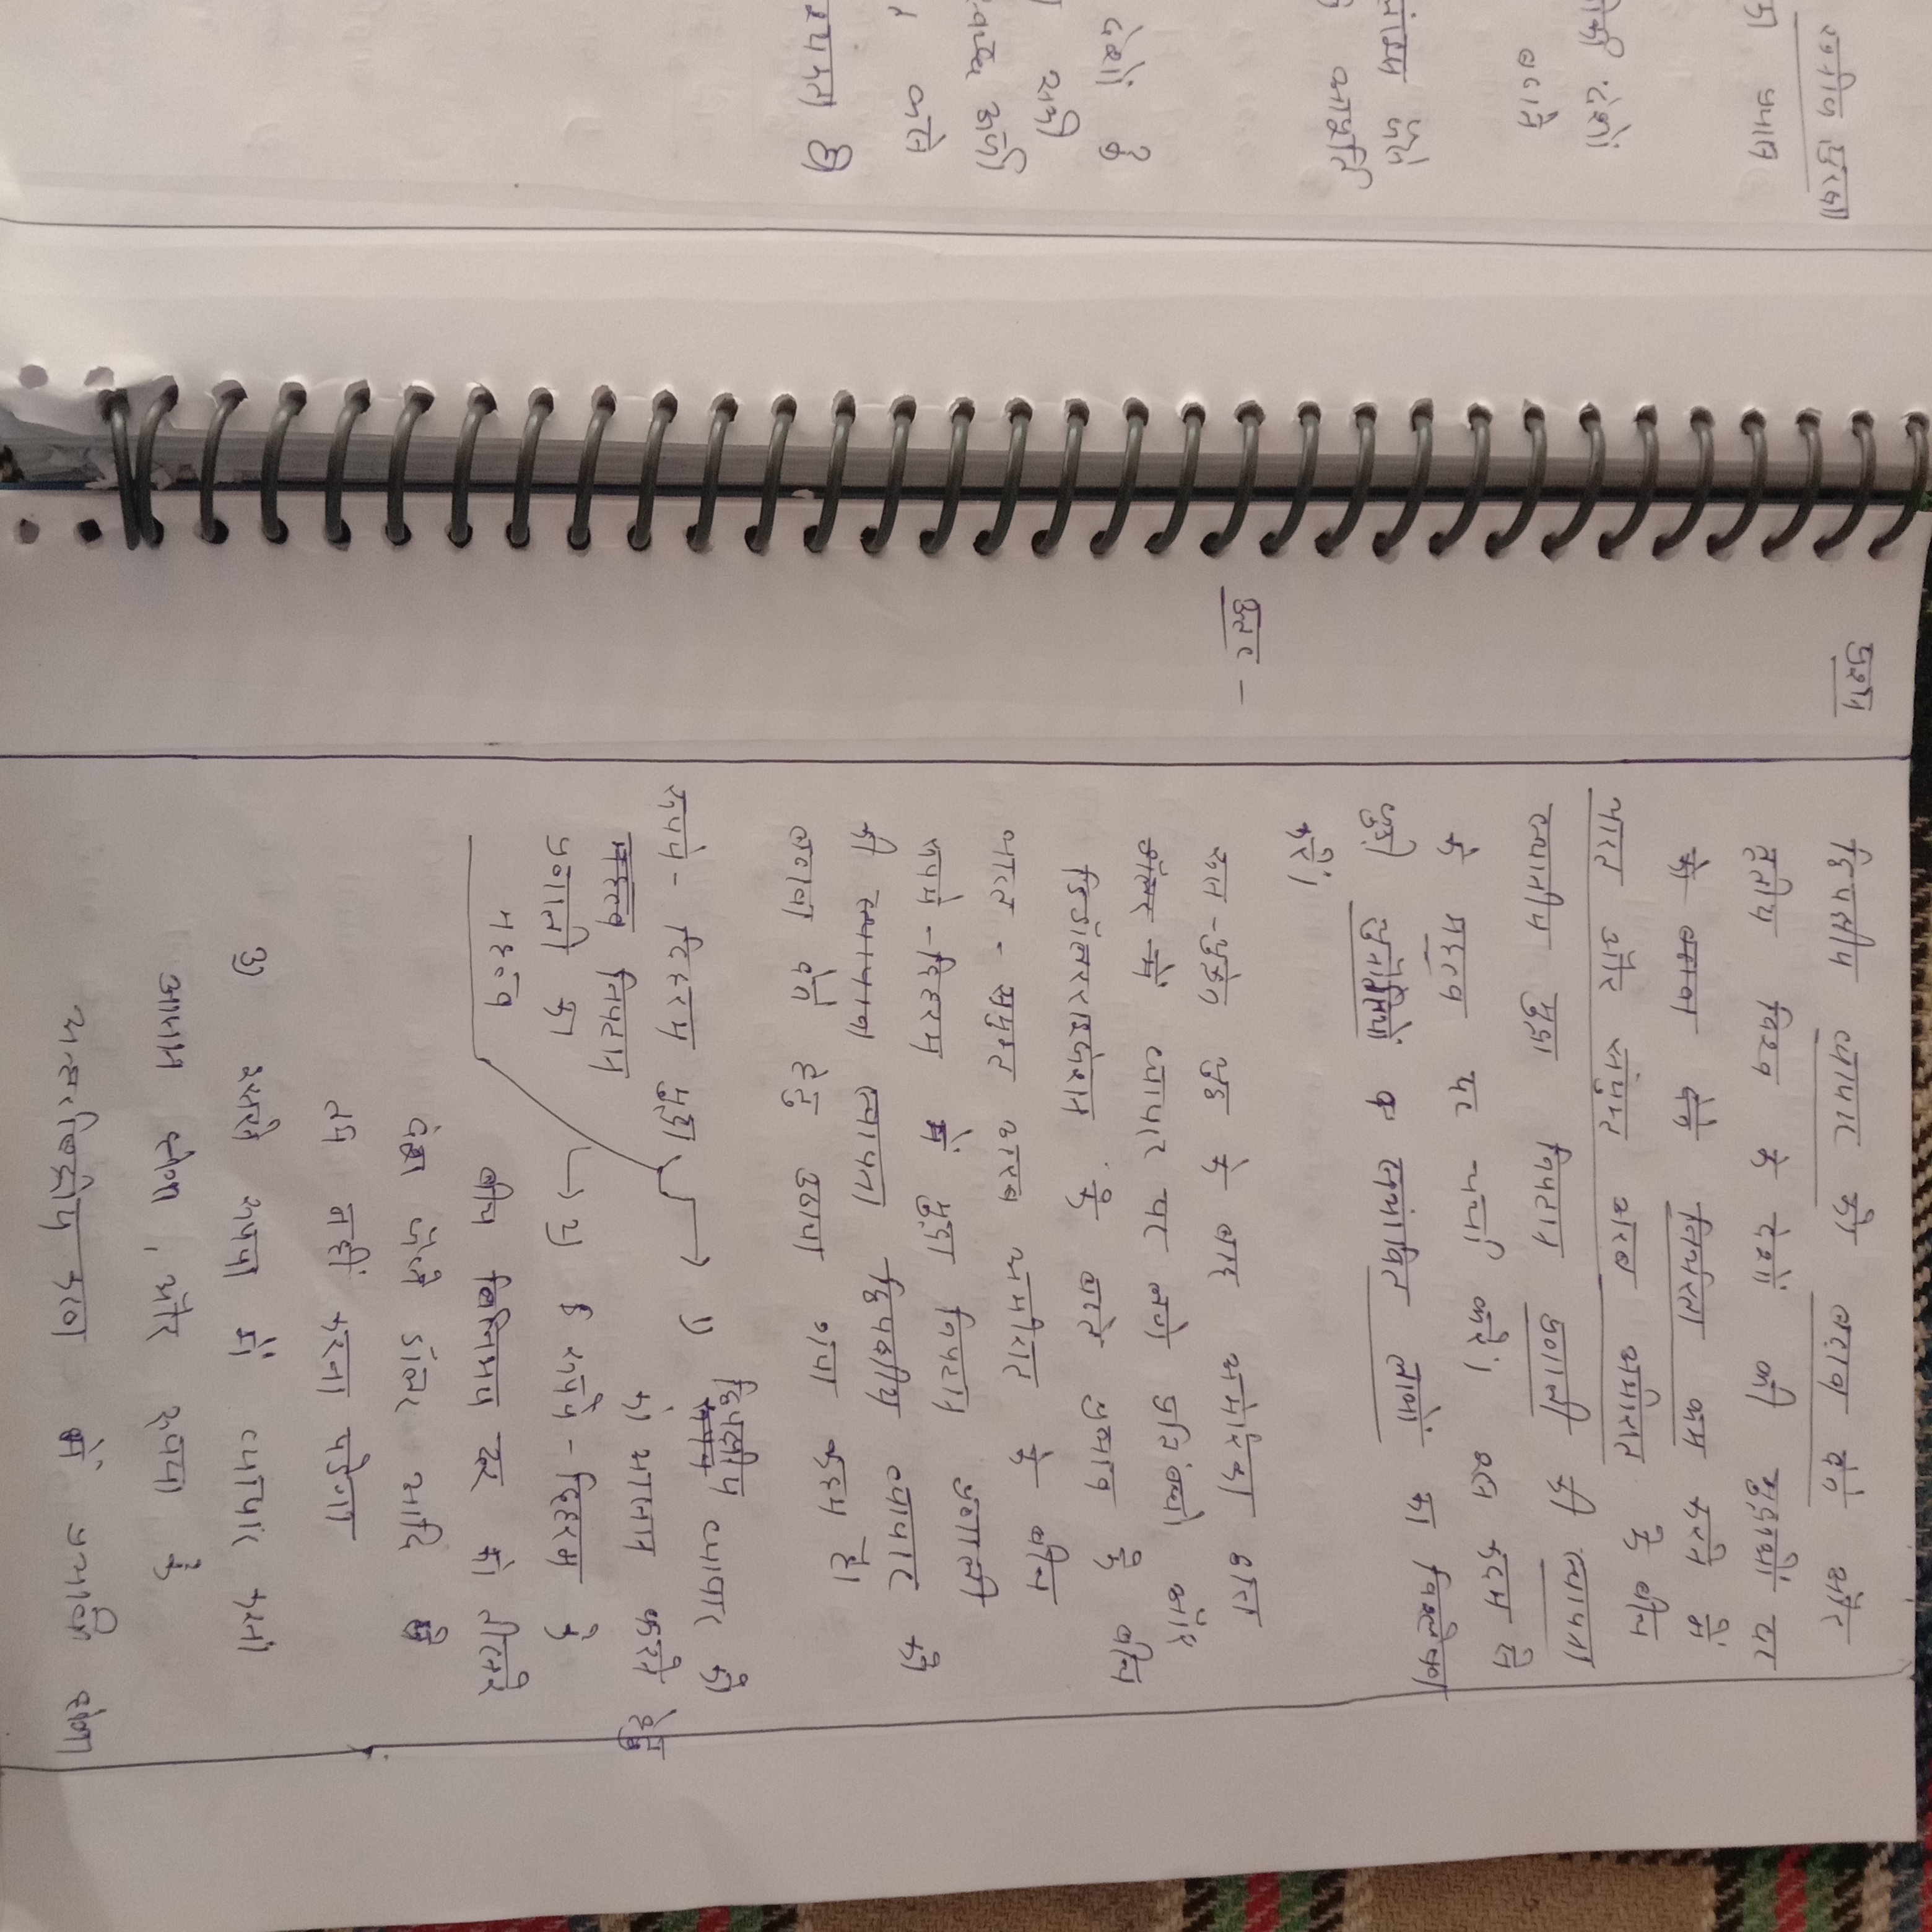 प्रश्न
द्विपक्षीय व्यापार को बढ़ावा देने और
तृतीय विश्व के देशों की मुद्राओं पर
निर्भरता कम करने में
भारत और संयुक्त अरब अमीरात के बीच
स्थानीय मुद्रा निपटान प्रणाली की स्थापना
के महत्व पर चर्चा करें। इस कदम से
जुड़ी चुनौतियों व संभावित लाभों का विश्लेषण
करें।
उत्तर -
रूस-यूक्रेन युद्ध के बाद अमेरिका द्वारा
व्यापार पर लगे प्रतिबंधों और
डिडॉलरराइजेशन के बढ़ते प्रभाव के बीच
भारत - संयुक्त अरब अमीरात के बीच
रूपये - दिरहम में मुद्रा निपटान प्रणाली
की स्थापना द्विपक्षीय व्यापार को
बढ़ावा देने हेतु उठाया गया कदम है।
रूपये - दिरहम मुद्रा
निपटान
प्रणाली का
महत्व
द्विपक्षीय व्यापार को
को आसान करने हेतु
रूपये - दिरहम के
बीच विनिमय दर को तीसरे
देश जैसे डॉलर आदि से
तय नहीं करना पड़ेगा
इससे रूपया में व्यापार करना
आसान होगा, और रूपया के
अन्तर्राष्ट्रीयकरण में प्रगति होगी
रणनीति सुरक्षा
का प्रभाव
देशों
बढाने
देशों के
सभी
करने